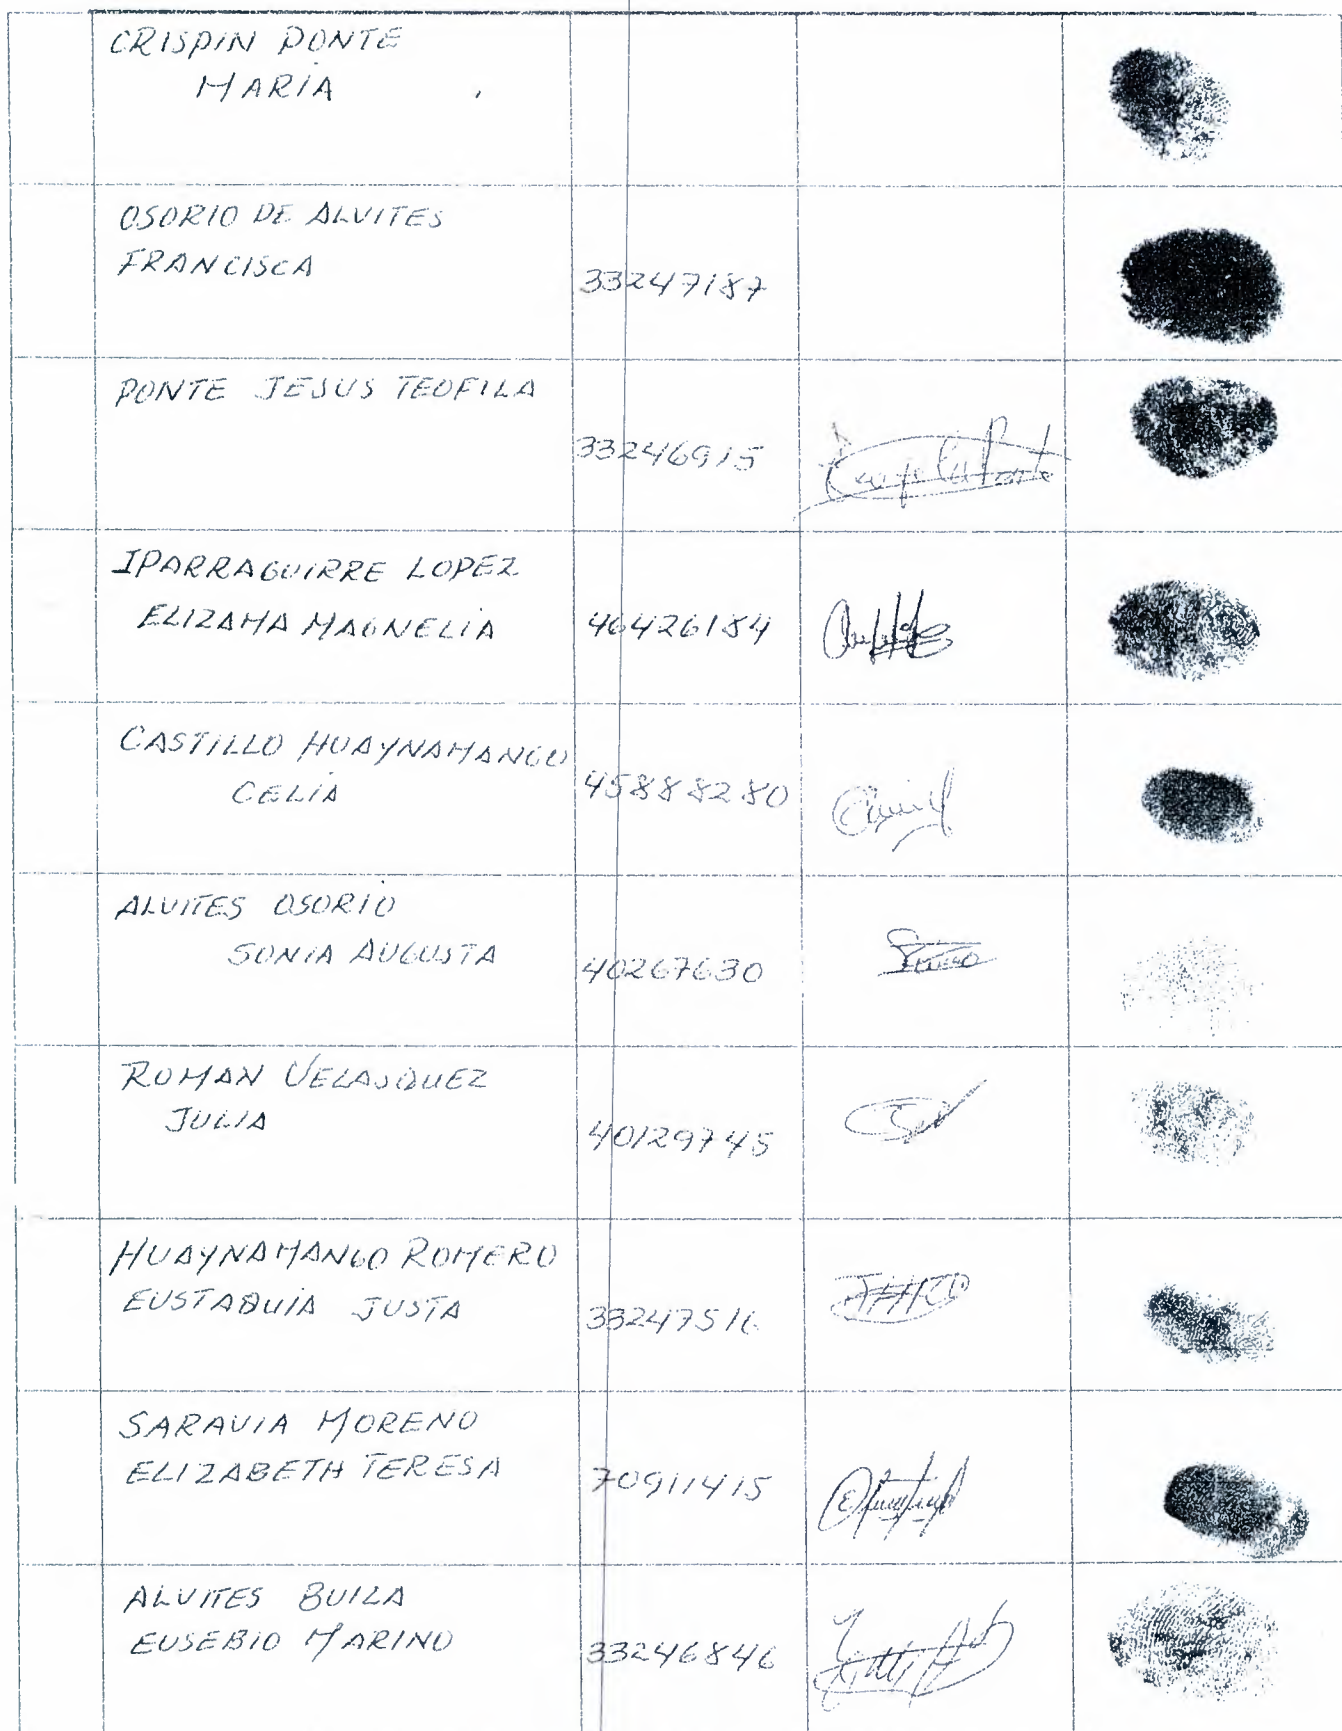 CRISPIN PONTE
MARIA
OSORIO DE ALVITES
FRANCISCA
33247187
PONTE JESUS TEOFILA
33246915
IPARRAGUIRRE LOPEZ
ELIZAMA MAGNELIA
46426184
CASTILLO HUAYNAMANGO
CELIA
45888280
ALVITES OSORIO
SONIA AUGUSTA
40267630
ROMAN VELASQUEZ
JULIA
40129745
HUAYNAMANGO ROMERO
EUSTAQUIA JUSTA
33247516
SARAVIA MORENO
ELIZABETH TERESA
70911415
ALVITES BUILA
EUSEBIO MARINO
33246846